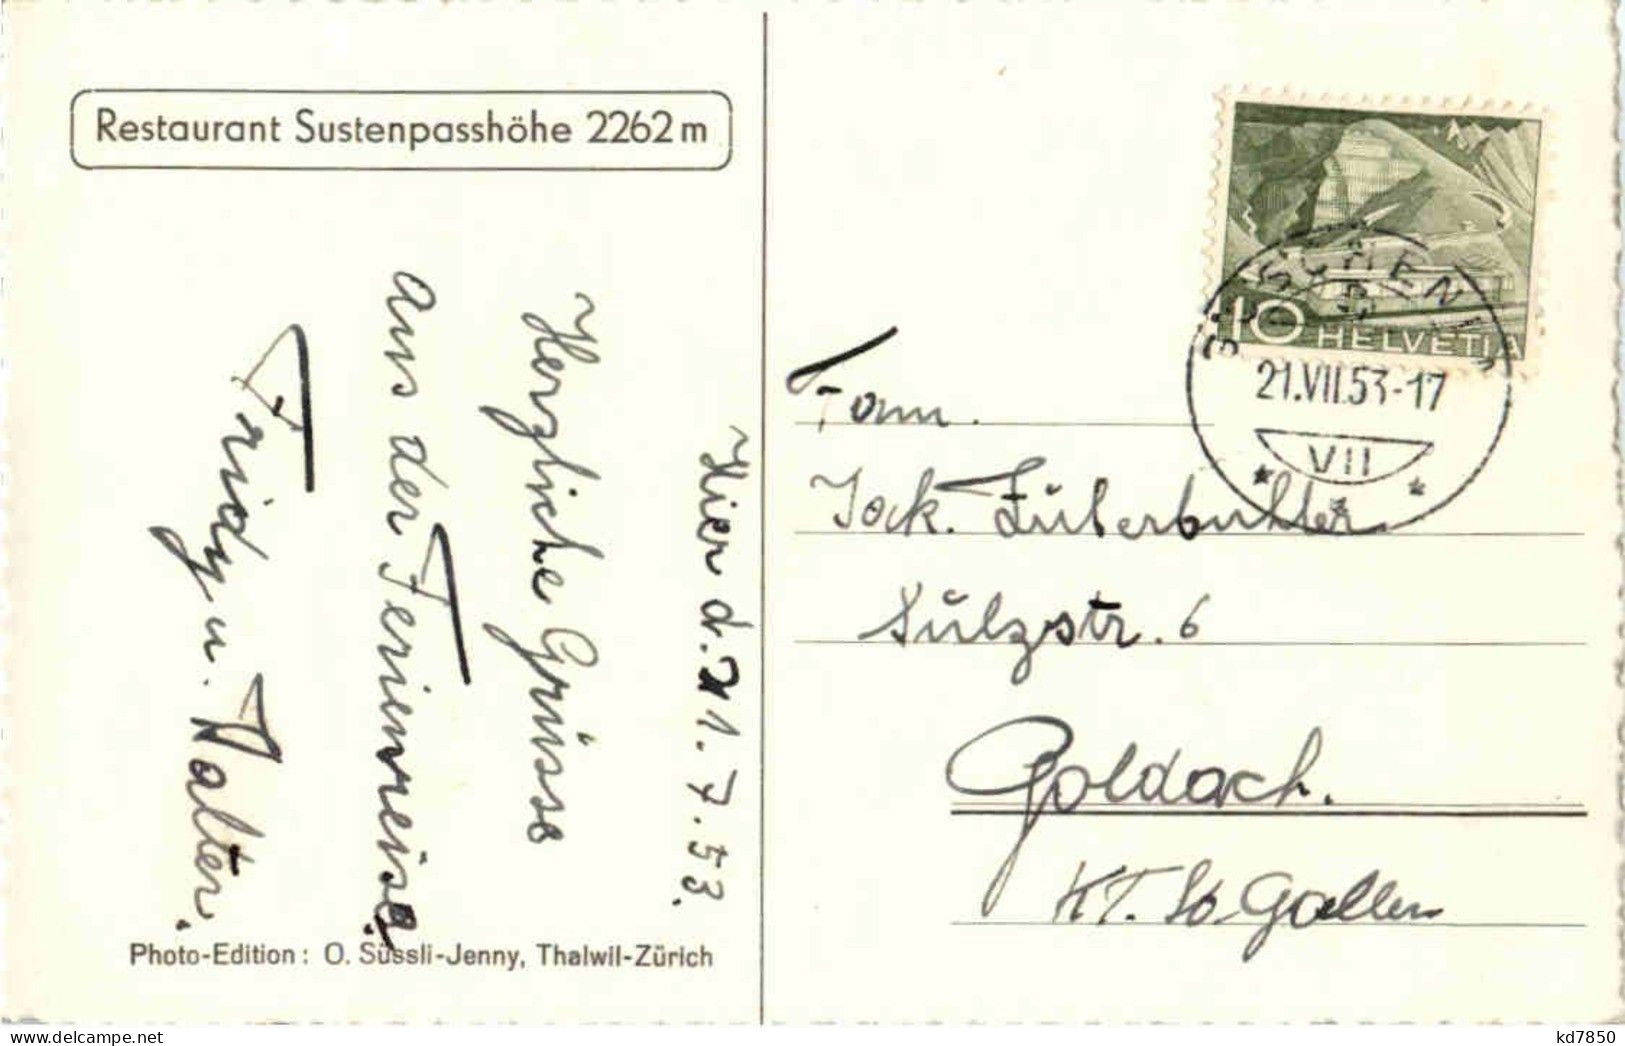 Restaurant Sustenpasshöhe 2262 m
Hier d. 21. 7. 53.
Herzliche Grüsse
aus der Ferienreise
Fridy u. Walter.
Photo-Edition: O. Süssli-Jenny, Thalwil-Zürich
10 HELVETIA
21.VII.53-17
VII
Fam.
Jock. Züberbuhler
Sulzstr. 6
Goldach.
KT. St. Gallen
delcampe.net
kd7850